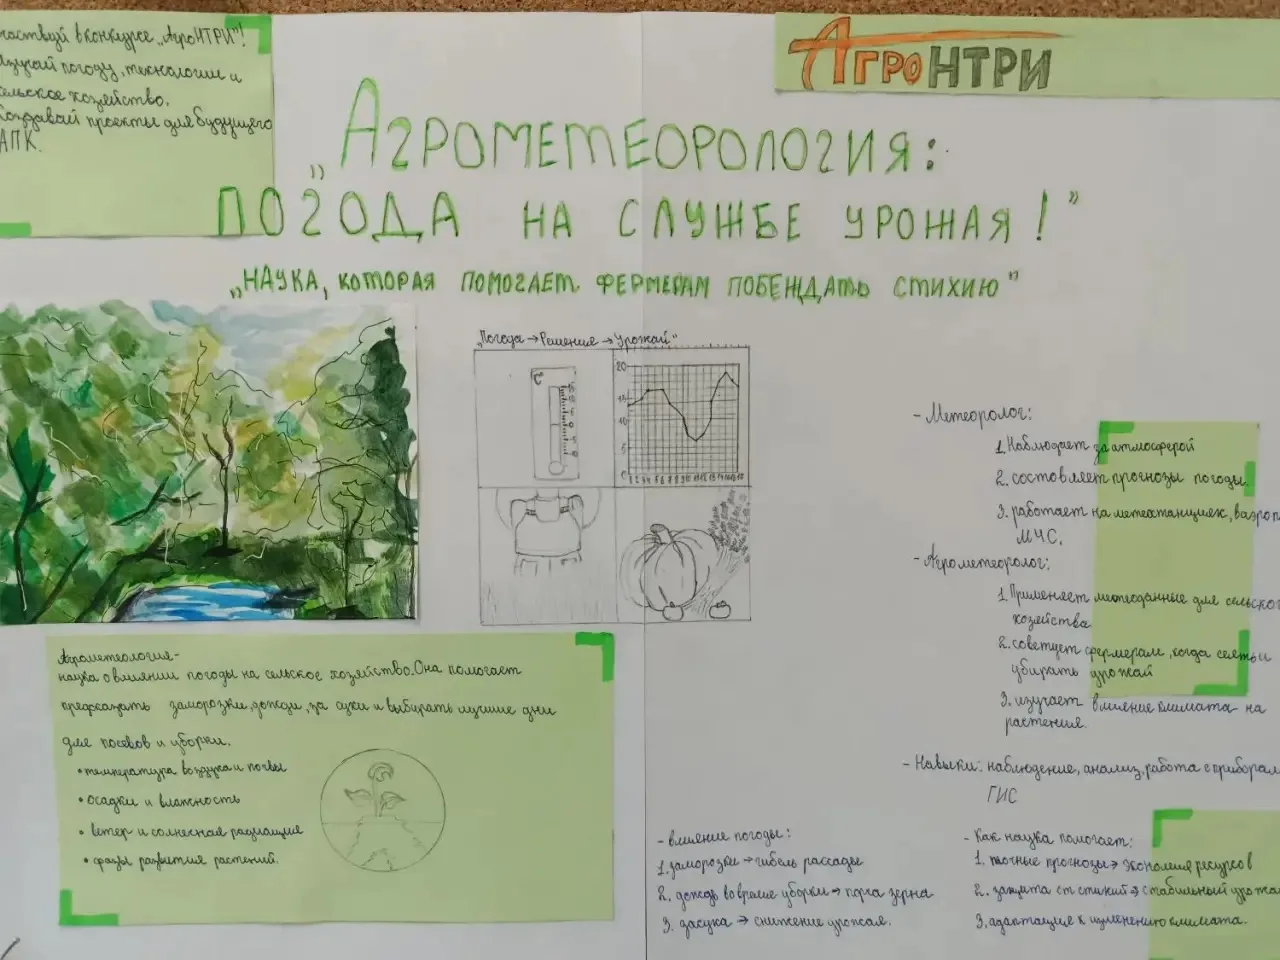 частвуй в конкурсе „АгроНТРИ"!
зучай погоду, технологии и
ельское хозяйство.
оздавай проекты для будущего
АПК.
АГРОНТРИ
„АГРОМЕТЕОРОЛОГИЯ:
ПОГОДА НА СЛУЖБЕ УРОЖАЯ!"
„НАУКА, КОТОРАЯ ПОМОГАЕТ ФЕРМЕРАМ ПОБЕЖДАТЬ СТИХИЮ"
„Погода → Решение → Урожай"
°C
20
15
10
5
0
- Метеоролог:
1. Наблюдает за атмосферой
2. составляет прогнозы погоды.
3. работает на метеостанциях, в аэроп
МЧС.
- Агрометеоролог:
1. Применяет метеоданные для сельског
хозяйства
2. советует фермерам, когда сеять и
убирать урожай
3. изучает влияние климата на
растения.
- Навыки: наблюдение, анализ, работа с приборам
ГИС
Агрометеология-
наука о влиянии погоды на сельское хозяйство. Она помогает
предсказать заморозки, дожди, за сухи и выбирать лучшие дни
для посевов и уборки.
• температура воздуха и почвы
• осадки и влажность
• ветер и солнечная радиация
• фазы развития растений.
- влияние погоды:
1. заморозки → гибель рассады
2. дождь во время уборки → порча зерна
3. засуха → снижение урожая.
- Как наука помогает:
1. точные прогнозы → экономия ресурсов
2. защита от стихий → стабильный урожай
3. адаптация к изменению климата.